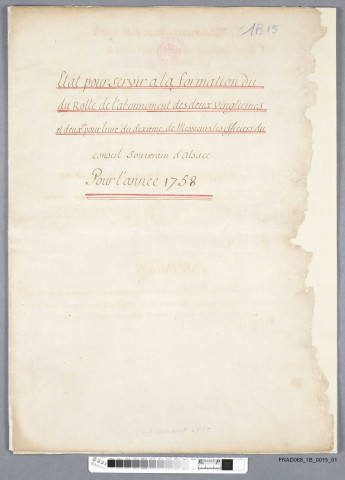 1B15
Etat pour servir a la formation du
du Rolle de l'abonnement des deux vingtiemes
et deux s. pour livre du dixieme de Messieurs les officiers du
conseil souverain d'alsace
Pour l'année 1758
FRAD068_1B_0015_01